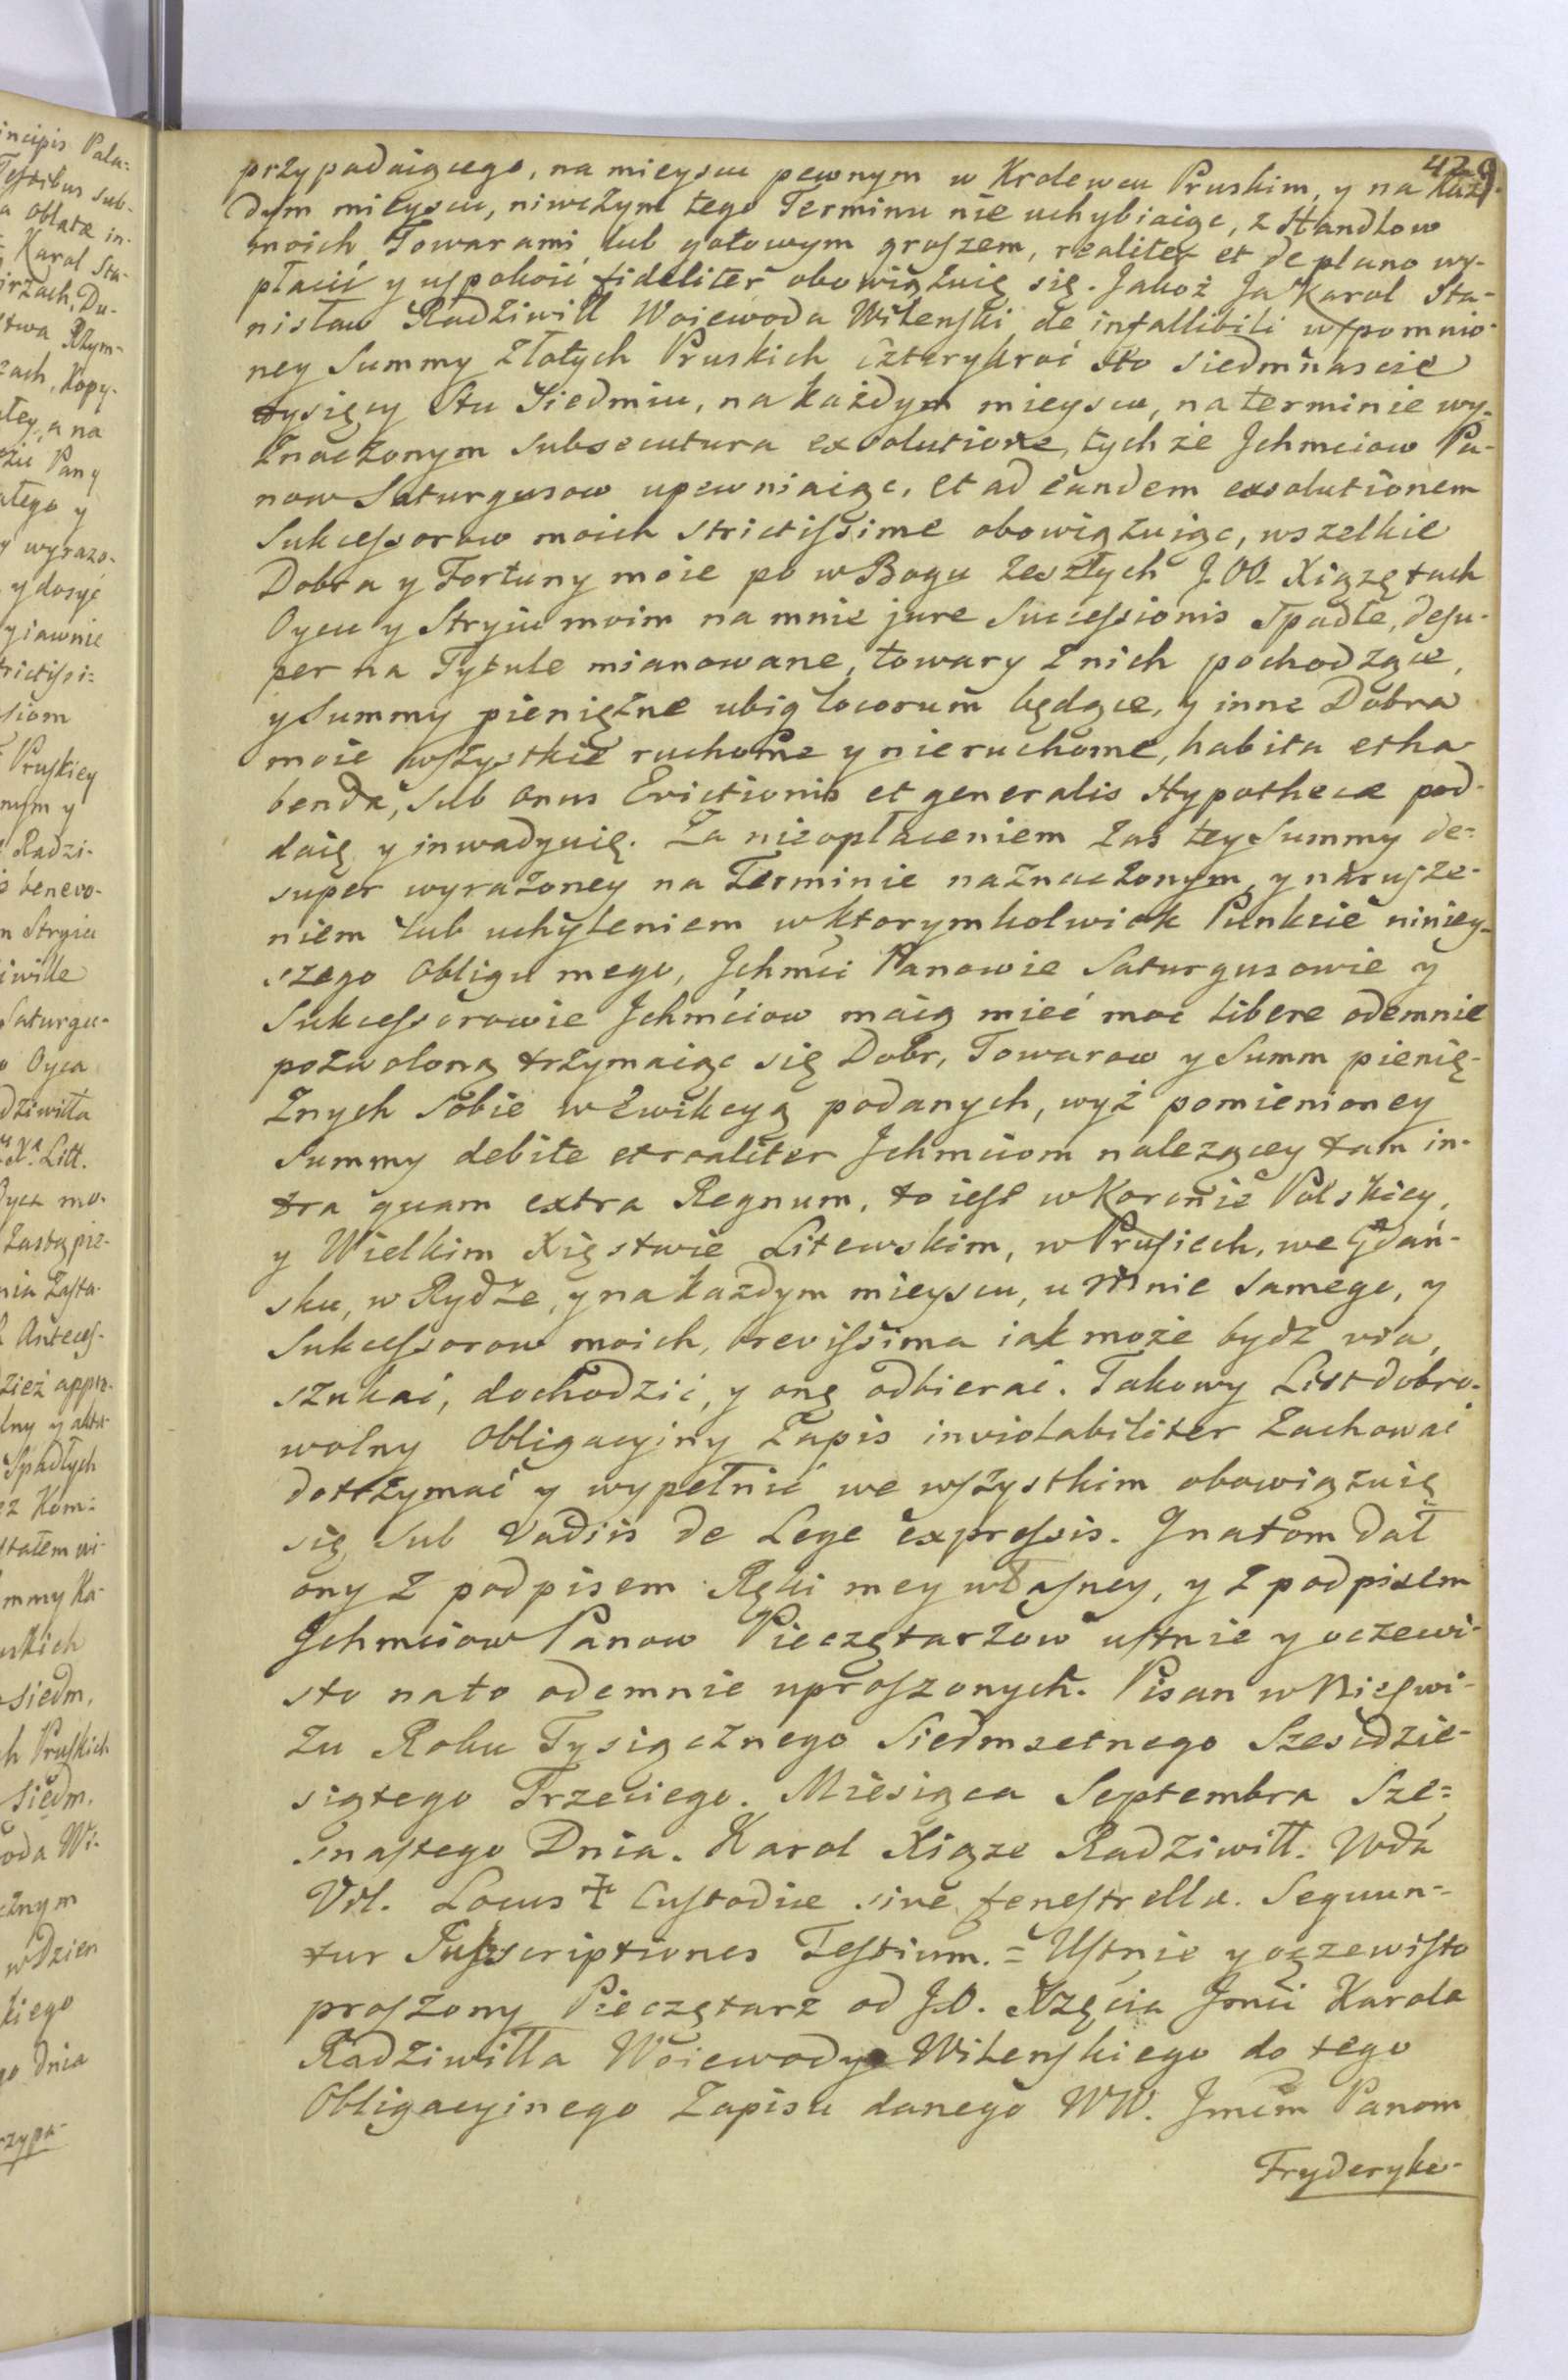 429
przypadaiącego, na mieyscu pewnym w Krolewcu Pruskim, y na każ-
dym mieyscu, niwczym tego Terminu nie uchybiaiąc, z Handlow
moich Towarami lub gotowym groszem, realiter et de plano wy-
płacić y uspokoić fideliter obowiązuię się. Jakoż Ja Karol Sta-
nisław Radziwiłł Woiewoda Wilenski de infallibili wspomnio-
ney Summy Złotych Pruskich czterykroć sto siedmnascie
tysięcy Stu Siedmiu, na każdym mieyscu, na terminie wy-
znaczonym subsecutura exsolutione, tych że Jchmciow Pa-
now Saturgusow upewniaiąc, et ad eandem exsolutionem
Sukcessorow moich strictissime obowiązuiąc, wszelkie
Dobra y Fortuny moie po w Bogu zeszłych J.OO. Xiązętach
Oycu y Stryiu moim na mnie jure Successionis Spadłe, desu-
per na Tytule mianowane, towary z nich pochodzące,
y Summy pieniężne ubiq locorum będące, y inne Dobra
moie wszystkie ruchome y nieruchome, habita et ha-
benda, sub onus Evictionis et generalis Hypothecæ pod-
daię y inwadyuię. Za nieopłaceniem zas tey Summy de-
super wyrażoney na Terminie naznaczonym, y narusze-
niem lub uchyleniem w ktorymkolwiek Punkcie niniey-
szego Obligu mego, Jchmći Panowie Saturgusowie y
Sukcessorowie Jchmćiow maią mieć moc libere odemnie
pozwoloną trzymaiąc się Dobr, Towarow y Summ pienię-
żnych Sobie w Ewikcyą podanych, wyż pomienioney
Summy debite et realiter Jchmciom nalezącey tam in-
tra quam extra Regnum, to iest w Koronie Polskiey,
y Wielkim Xięstwie Litewskim, w Prusiech, we Gdań-
sku, w Rydze, y na każdym mieyscu, u Mnie Samego, y
Sukcessorow moich, brevissima iak może bydz via,
szukać, dochodzić, y onę odbierać. Takowy List dobro-
wolny Obligacyiny Zapis inviolabiliter zachować
dotrzymać y wypełnić we wszystkim obowiązuię
się sub Vadiis de Lege expressis. Jnatom dał
ony z podpisem Ręki mey własney, y z podpisem
Jchmciow Panow Pieczętarzow ustnie y oczewi-
sto nato odemnie uproszonych. Pisan w Nieswi-
żu Roku Tysiącznego Siedmsetnego Szescdzie-
siątego Trzeciego. Miesiąca Septembra Sze-
snastego Dnia. Karol Xiąze Radziwiłł. Wda
Wil. Locus ‡ Custodiæ sive fenestrellæ. Sequun-
tur Subscriptiones Testium. = Ustnie y oczewisto
proszony Pieczętarz od J.O. Xzęcia Jmci Karola
Radziwiłła Woiewody Wilenskiego do tego
Obligacyinego Zapisu danego WW. Jmćm Panom
Fryderyko-